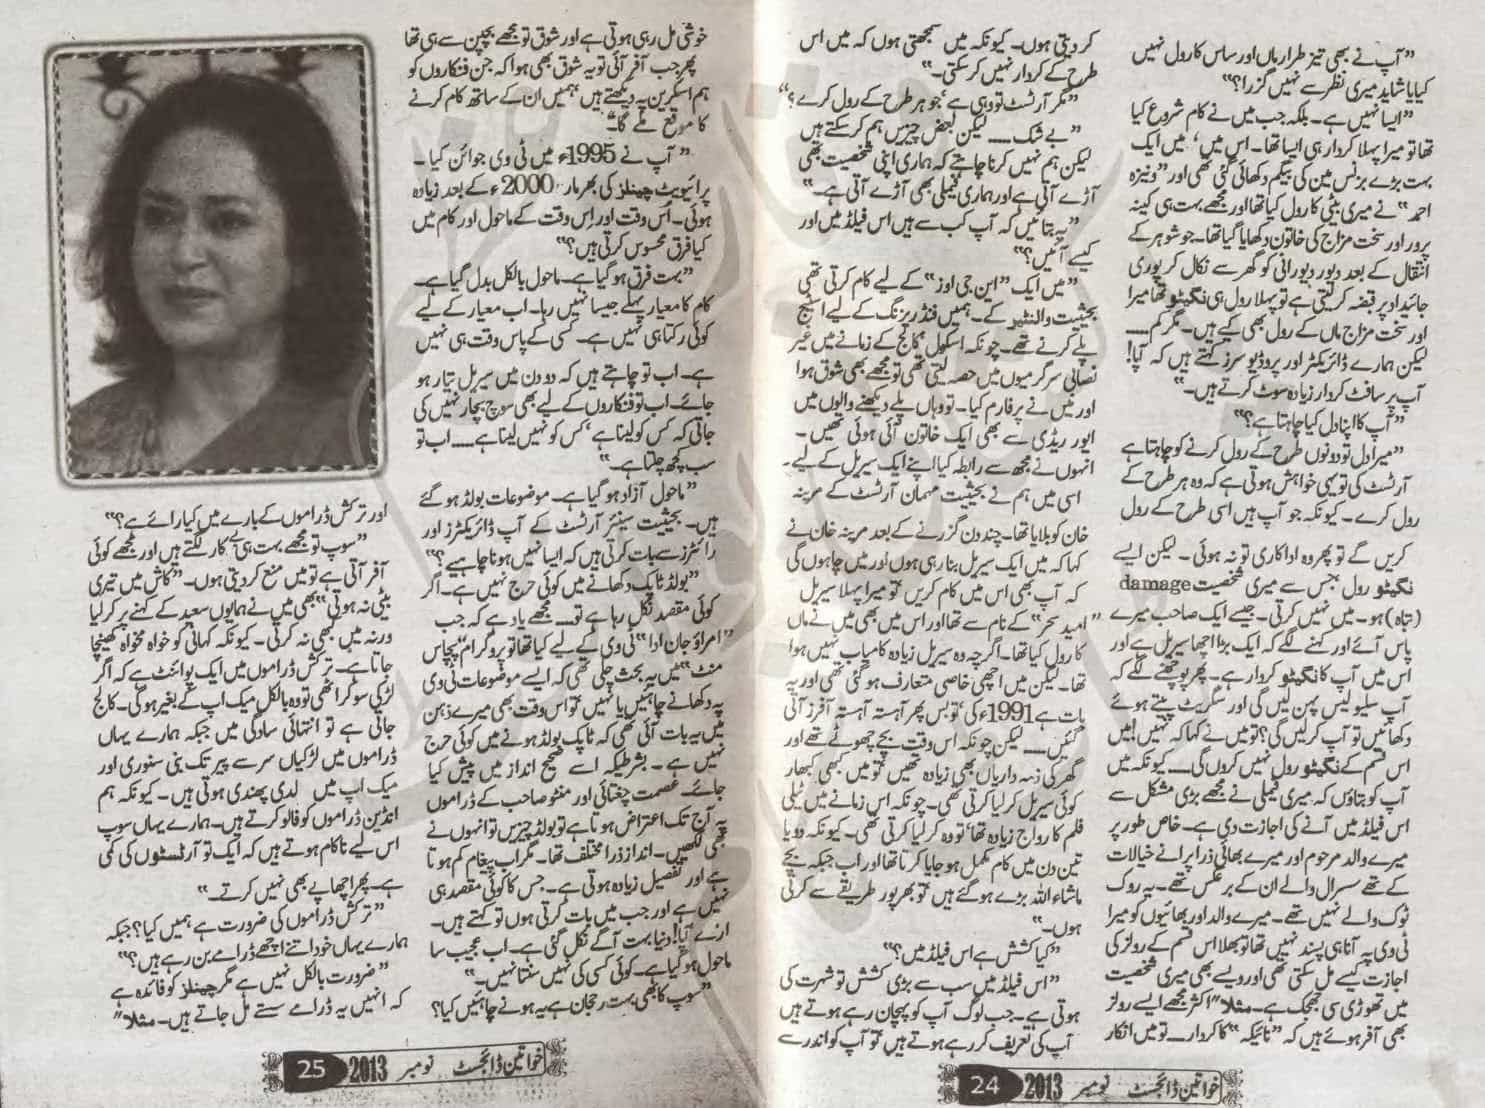 ”آپ نے بھی تیز طرار ماں اور ساس کا رول نہیں
کیا یا شاید میری نظر سے نہیں گزرا؟“
”ایسا نہیں ہے۔ بلکہ جب میں نے کام شروع کیا
تھا تو میرا پہلا کردار ہی ایسا تھا۔ اس میں‘ میں ایک
بہت بڑے بزنس مین کی بیگم دکھائی گئی تھی اور ”ونیزہ
احمد“ نے میری بیٹی کا رول کیا تھا اور مجھے بہت ہی کینہ
پرور اور سخت مزاج کی خاتون دکھایا گیا تھا۔ جو شوہر کے
انتقال کے بعد دیور دیورانی کو گھر سے نکال کر پوری
جائیداد پر قبضہ کر لیتی ہے تو پہلا رول ہی نگیٹو تھا میرا
اور سخت مزاج ماں کے رول بھی کیے ہیں۔ مگر کم.....
لیکن ہمارے ڈائریکٹر اور پروڈیوسرز کہتے ہیں کہ آپا!
آپ پر سافٹ کردار زیادہ سوٹ کرتے ہیں۔“
”آپ کا اپنا دل کیا چاہتا ہے؟“
”میرا دل تو دونوں طرح کے رول کرنے کو چاہتا ہے
آرٹسٹ کی تو یہی خواہش ہوتی ہے کہ وہ ہر طرح کے
رول کرے۔ کیونکہ جو آپ ہیں اسی طرح کے رول
کریں گے تو پھر وہ اداکاری تو نہ ہوئی۔ لیکن ایسے
نگیٹو رول جس سے میری شخصیت damage
(تباہ) ہو۔ میں نہیں کرتی۔ جیسے ایک صاحب میرے
پاس آئے اور کہنے لگے کہ ایک بڑا اچھا سیریل ہے اور
اس میں آپ کا نگیٹو کردار ہے۔ پھر پوچھنے لگے کہ
آپ سلیولیس پہن لیں گی اور سگریٹ پیتے ہوئے
دکھائیں تو آپ کر لیں گی؟ تو میں نے کہا کہ نہیں! میں
اس قسم کے نگیٹو رول نہیں کروں گی..... کیونکہ میں
آپ کو بتاؤں کہ میری فیملی نے مجھے بڑی مشکل سے
اس فیلڈ میں آنے کی اجازت دی ہے۔ خاص طور پر
میرے والد مرحوم اور میرے بھائی ذرا پرانے خیالات
کے تھے سسرال والے ان کے برعکس تھے۔ یہ روک
ٹوک والے نہیں تھے۔ میرے والد اور بھائیوں کو میرا
ٹی وی پہ آنا ہی پسند نہیں تھا تو بھلا اس قسم کے رولز کی
اجازت کیسے مل سکتی تھی اور ویسے بھی میری شخصیت
میں تھوڑی سی جھجک ہے۔ مثلاً“ اکثر مجھے ایسے رولز
بھی آفر ہوئے ہیں کہ ”نائیکہ“ کا کردار۔ تو میں انکار
کر دیتی ہوں۔ کیونکہ میں سمجھتی ہوں کہ میں اس
طرح کے کردار نہیں کر سکتی۔“
”مگر آرٹسٹ تو وہی ہے‘ جو ہر طرح کے رول کرے؟“
”بے شک..... لیکن بعض چیزیں ہم کر سکتے ہیں
لیکن ہم نہیں کرنا چاہتے کہ ہماری اپنی شخصیت بھی
آڑے آتی ہے اور ہماری فیملی بھی آڑے آتی ہے۔“
”یہ بتائیں کہ آپ کب سے ہیں اس فیلڈ میں اور
کیسے آئیں؟“
”میں ایک ”این جی اوز“ کے لیے کام کرتی تھی
بحیثیت والنٹیر کے۔ ہمیں فنڈریزنگ کے لیے اسٹیج
پلے کرنے تھے۔ چونکہ اسکول‘ کالج کے زمانے میں غیر
نصابی سرگرمیوں میں حصہ لیتی تھی تو مجھے بھی شوق ہوا
اور میں نے پرفارم کیا۔ تو وہاں پلے دیکھنے والوں میں
ایور ریڈی سے بھی ایک خاتون آئی ہوئی تھیں۔
انہوں نے مجھ سے رابطہ کیا اپنے ایک سیریل کے لیے۔
اسی میں ہم نے بحیثیت مہمان آرٹسٹ کے مرینہ
خان کو بلایا تھا۔ چند دن گزرنے کے بعد مرینہ خان نے
کہا کہ میں ایک سیریل بنا رہی ہوں اور میں چاہوں گی
کہ آپ بھی اس میں کام کریں تو میرا پہلا سیریل
”امید سحر“ کے نام سے تھا اور اس میں بھی میں نے ماں
کا رول کیا تھا۔ اگرچہ وہ سیریل زیادہ کامیاب نہیں ہوا
تھا۔ لیکن میں اچھی خاصی متعارف ہو گئی تھی اور یہ
بات ہے 1991ء کی‘ تو بس پھر آہستہ آہستہ آفرز آتی
گئیں..... لیکن چونکہ اس وقت بچے چھوٹے تھے اور
گھر کی ذمہ داریاں بھی زیادہ تھیں تو میں کبھی کبھار
کوئی سیریل کر لیا کرتی تھی۔ چونکہ اس زمانے میں ٹیلی
فلم کا رواج زیادہ تھا‘ تو وہ کر لیا کرتی تھی۔ کیونکہ دو یا
تین دن میں کام مکمل ہو جایا کرتا تھا اور اب جبکہ بچے
ماشاء اللہ بڑے ہو گئے ہیں تو بھرپور طریقے سے کرتی
ہوں۔“
”کیا کشش ہے اس فیلڈ میں؟“
”اس فیلڈ میں سب سے بڑی کشش تو شہرت کی
ہوتی ہے۔ جب لوگ آپ کو پہچان رہے ہوتے ہیں
آپ کی تعریف کر رہے ہوتے ہیں تو آپ کو اندر سے
خواتین ڈائجسٹ نومبر 2013 24
خوشی مل رہی ہوتی ہے اور شوق تو مجھے بچپن سے ہی تھا
پھر جب آفر آئی تو یہ شوق بھی ہوا کہ جن فنکاروں کو
ہم اسکرین پہ دیکھتے ہیں‘ ہمیں ان کے ساتھ کام کرنے
کا موقع ملے گا۔“
”آپ نے 1995ء میں ٹی وی جوائن کیا۔
پرائیویٹ چینلز کی بھرمار‘ 2000ء کے بعد زیادہ
ہوئی۔ اُس وقت اور اِس وقت کے ماحول اور کام میں
کیا فرق محسوس کرتی ہیں؟“
”بہت فرق ہو گیا ہے۔ ماحول بالکل بدل گیا ہے۔
کام کا معیار پہلے جیسا نہیں رہا۔ اب معیار کے لیے
کوئی رکتا ہی نہیں ہے۔ کسی کے پاس وقت ہی نہیں
ہے۔ اب تو چاہتے ہیں کہ دو دن میں سیریل تیار ہو
جائے۔ اب تو فنکاروں کے لیے بھی سوچ بچار نہیں کی
جاتی کہ کس کو لینا ہے‘ کس کو نہیں لینا ہے..... اب تو
سب کچھ چلتا ہے۔“
”ماحول آزاد ہو گیا ہے۔ موضوعات بولڈ ہو گئے
ہیں۔ بحیثیت سینئر آرٹسٹ کے آپ ڈائریکٹرز اور
رائٹرز سے بات کرتی ہیں کہ ایسا نہیں ہونا چاہیے؟“
”بولڈ ٹاپک دکھانے میں کوئی حرج نہیں ہے۔ اگر
کوئی مقصد نکل رہا ہے تو..... مجھے یاد ہے کہ جب
”امراؤ جان ادا“ ٹی وی کے لیے کیا تھا تو پروگرام ”پچاس
منٹ“ میں یہ بحث چلی تھی کہ ایسے موضوعات ٹی وی
پہ دکھانے چاہئیں یا نہیں تو اس وقت بھی میرے ذہن
میں یہ بات آئی تھی کہ ٹاپک بولڈ ہونے میں کوئی حرج
نہیں ہے۔ بشرطیکہ اسے صحیح انداز میں پیش کیا
جائے۔ عصمت چغتائی اور منٹو صاحب کے ڈراموں
پہ آج تک اعتراض ہوتا ہے تو بولڈ چیزیں تو انہوں نے
بھی لکھیں۔ انداز ذرا مختلف تھا۔ مگر اب پیغام کم ہوتا
ہے اور تفصیل زیادہ ہوتی ہے۔ جس کا کوئی مقصد ہی
نہیں ہے اور جب میں بات کرتی ہوں تو کہتے ہیں۔
ارے آپا! دنیا بہت آگے نکل گئی ہے۔ اب عجیب سا
ماحول ہو گیا ہے۔ کوئی کسی کی نہیں سنتا نہیں۔“
”سوپ کا بھی بہت رجحان ہے یہ ہونے چاہئیں کیا؟
اور ترکش ڈراموں کے بارے میں کیا رائے ہے؟“
”سوپ تو مجھے بہت ہی بے کار لگتے ہیں اور مجھے کوئی
آفر آتی ہے تو میں منع کر دیتی ہوں۔ ”کاش میں تیری
بیٹی نہ ہوتی“ بھی میں نے ہمایوں سعید کے کہنے پر کر لیا
ورنہ میں کبھی نہ کرتی۔ کیونکہ کہانی کو خواہ مخواہ کھینچا
جاتا ہے۔ ترکش ڈراموں میں ایک پوائنٹ ہے کہ اگر
لڑکی سو کر اٹھی تو وہ بالکل میک اپ کے بغیر ہو گی۔ کالج
جاتی ہے تو انتہائی سادگی میں جبکہ ہمارے یہاں
ڈراموں میں لڑکیاں سر سے پیر تک بنی سنوری اور
میک اپ میں لدی پھندی ہوتی ہیں۔ کیونکہ ہم
انڈین ڈراموں کو فالو کرتے ہیں۔ ہمارے یہاں سوپ
اس لیے ناکام ہوتے ہیں کہ ایک تو آرٹسٹوں کی کمی
ہے۔ پھر اچھا پے بھی نہیں کرتے۔“
”ترکش ڈراموں کی ضرورت ہے ہمیں کیا؟ جبکہ
ہمارے یہاں خود اتنے اچھے ڈرامے بن رہے ہیں؟“
”ضرورت بالکل نہیں ہے مگر چینلز کو فائدہ ہے
کہ انہیں یہ ڈرامے سستے مل جاتے ہیں۔ مثلاً“
خواتین ڈائجسٹ نومبر 2013 25